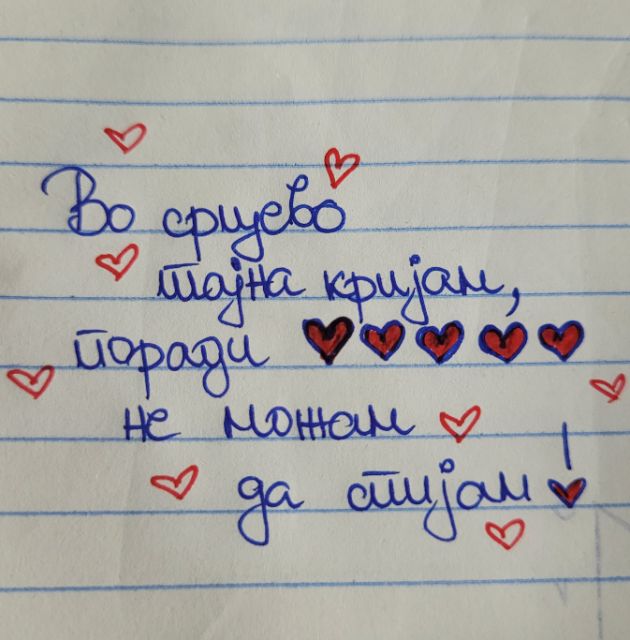 Во срцево
тајна кријам,
поради ♥♥♥♥♥
не можам
да спијам!